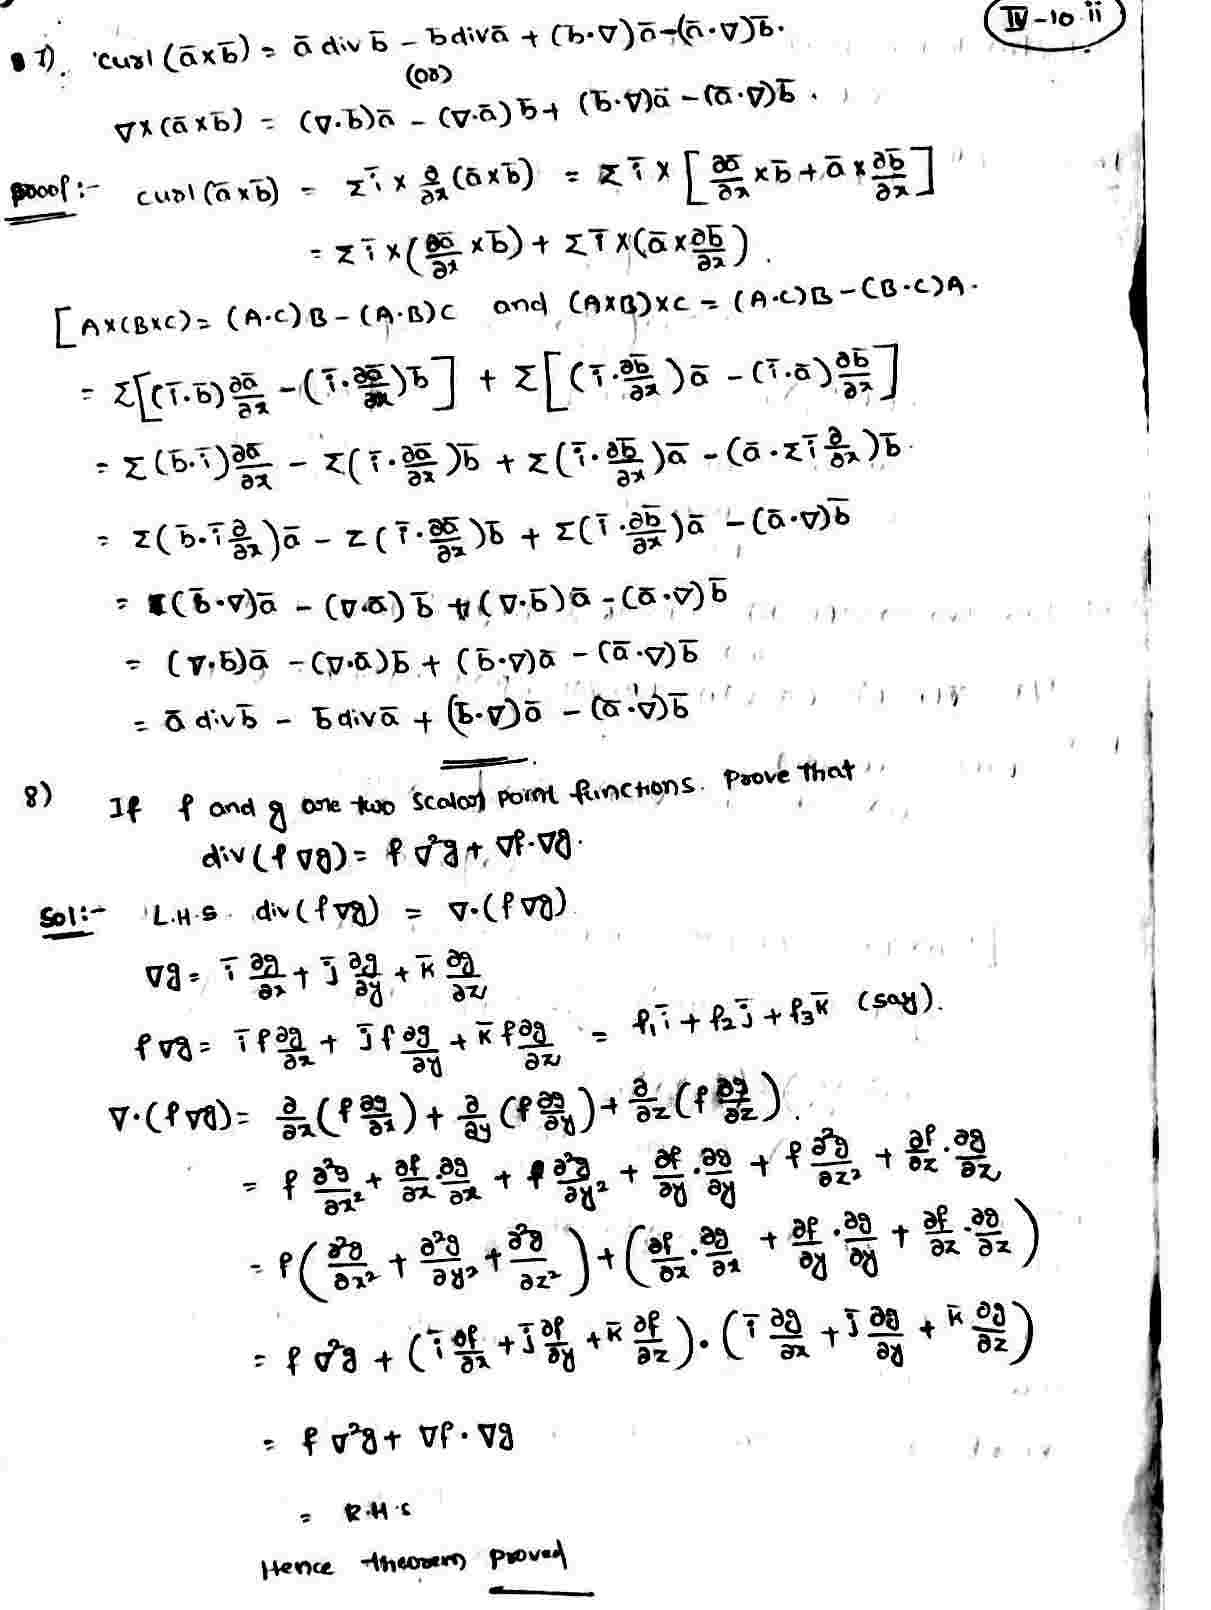 IV-10 ii
7). curl (ā×b̄) = ā div b̄ - b̄ div ā + (b̄·∇)ā - (ā·∇)b̄.
(or)
∇×(ā×b̄) = (∇·b̄)ā - (∇·ā)b̄ + (b̄·∇)ā - (ā·∇)b̄.
proof:- curl (ā×b̄) = Σ ī × ∂/∂x (ā×b̄) = Σ ī × [∂ā/∂x × b̄ + ā × ∂b̄/∂x]
= Σ ī × (∂ā/∂x × b̄) + Σ ī × (ā × ∂b̄/∂x).
[A×(B×C) = (A·C)B - (A·B)C and (A×B)×C = (A·C)B - (B·C)A.
= Σ[(ī·b̄) ∂ā/∂x - (ī·∂ā/∂x) b̄] + Σ[(ī·∂b̄/∂x) ā - (ī·ā) ∂b̄/∂x]
= Σ (b̄·ī) ∂ā/∂x - Σ(ī·∂ā/∂x) b̄ + Σ(ī·∂b̄/∂x) ā - (ā·Σ ī ∂/∂x) b̄.
= Σ(b̄·ī ∂/∂x) ā - Σ(ī·∂ā/∂x) b̄ + Σ(ī·∂b̄/∂x) ā - (ā·∇)b̄
= (b̄·∇)ā - (∇·ā) b̄ + (∇·b̄)ā - (ā·∇)b̄
= (∇·b̄)ā - (∇·ā)b̄ + (b̄·∇)ā - (ā·∇)b̄
= ā div b̄ - b̄ div ā + (b̄·∇)ā - (ā·∇)b̄
8) If f and g are two scalar point functions. Prove that
div (f ∇g) = f ∇²g + ∇f·∇g.
Sol:- L.H.S. div (f∇g) = ∇·(f∇g)
∇g = ī ∂g/∂x + j̄ ∂g/∂y + k̄ ∂g/∂z
f∇g = ī f ∂g/∂x + j̄ f ∂g/∂y + k̄ f ∂g/∂z = f₁ī + f₂j̄ + f₃k̄ (say).
∇·(f∇g) = ∂/∂x (f ∂g/∂x) + ∂/∂y (f ∂g/∂y) + ∂/∂z (f ∂g/∂z).
= f ∂²g/∂x² + ∂f/∂x·∂g/∂x + f ∂²g/∂y² + ∂f/∂y·∂g/∂y + f ∂²g/∂z² + ∂f/∂z·∂g/∂z
= f(∂²g/∂x² + ∂²g/∂y² + ∂²g/∂z²) + (∂f/∂x·∂g/∂x + ∂f/∂y·∂g/∂y + ∂f/∂z·∂g/∂z)
= f ∇²g + (ī ∂f/∂x + j̄ ∂f/∂y + k̄ ∂f/∂z)·(ī ∂g/∂x + j̄ ∂g/∂y + k̄ ∂g/∂z)
= f ∇²g + ∇f·∇g
= R.H.S
Hence theorem proved